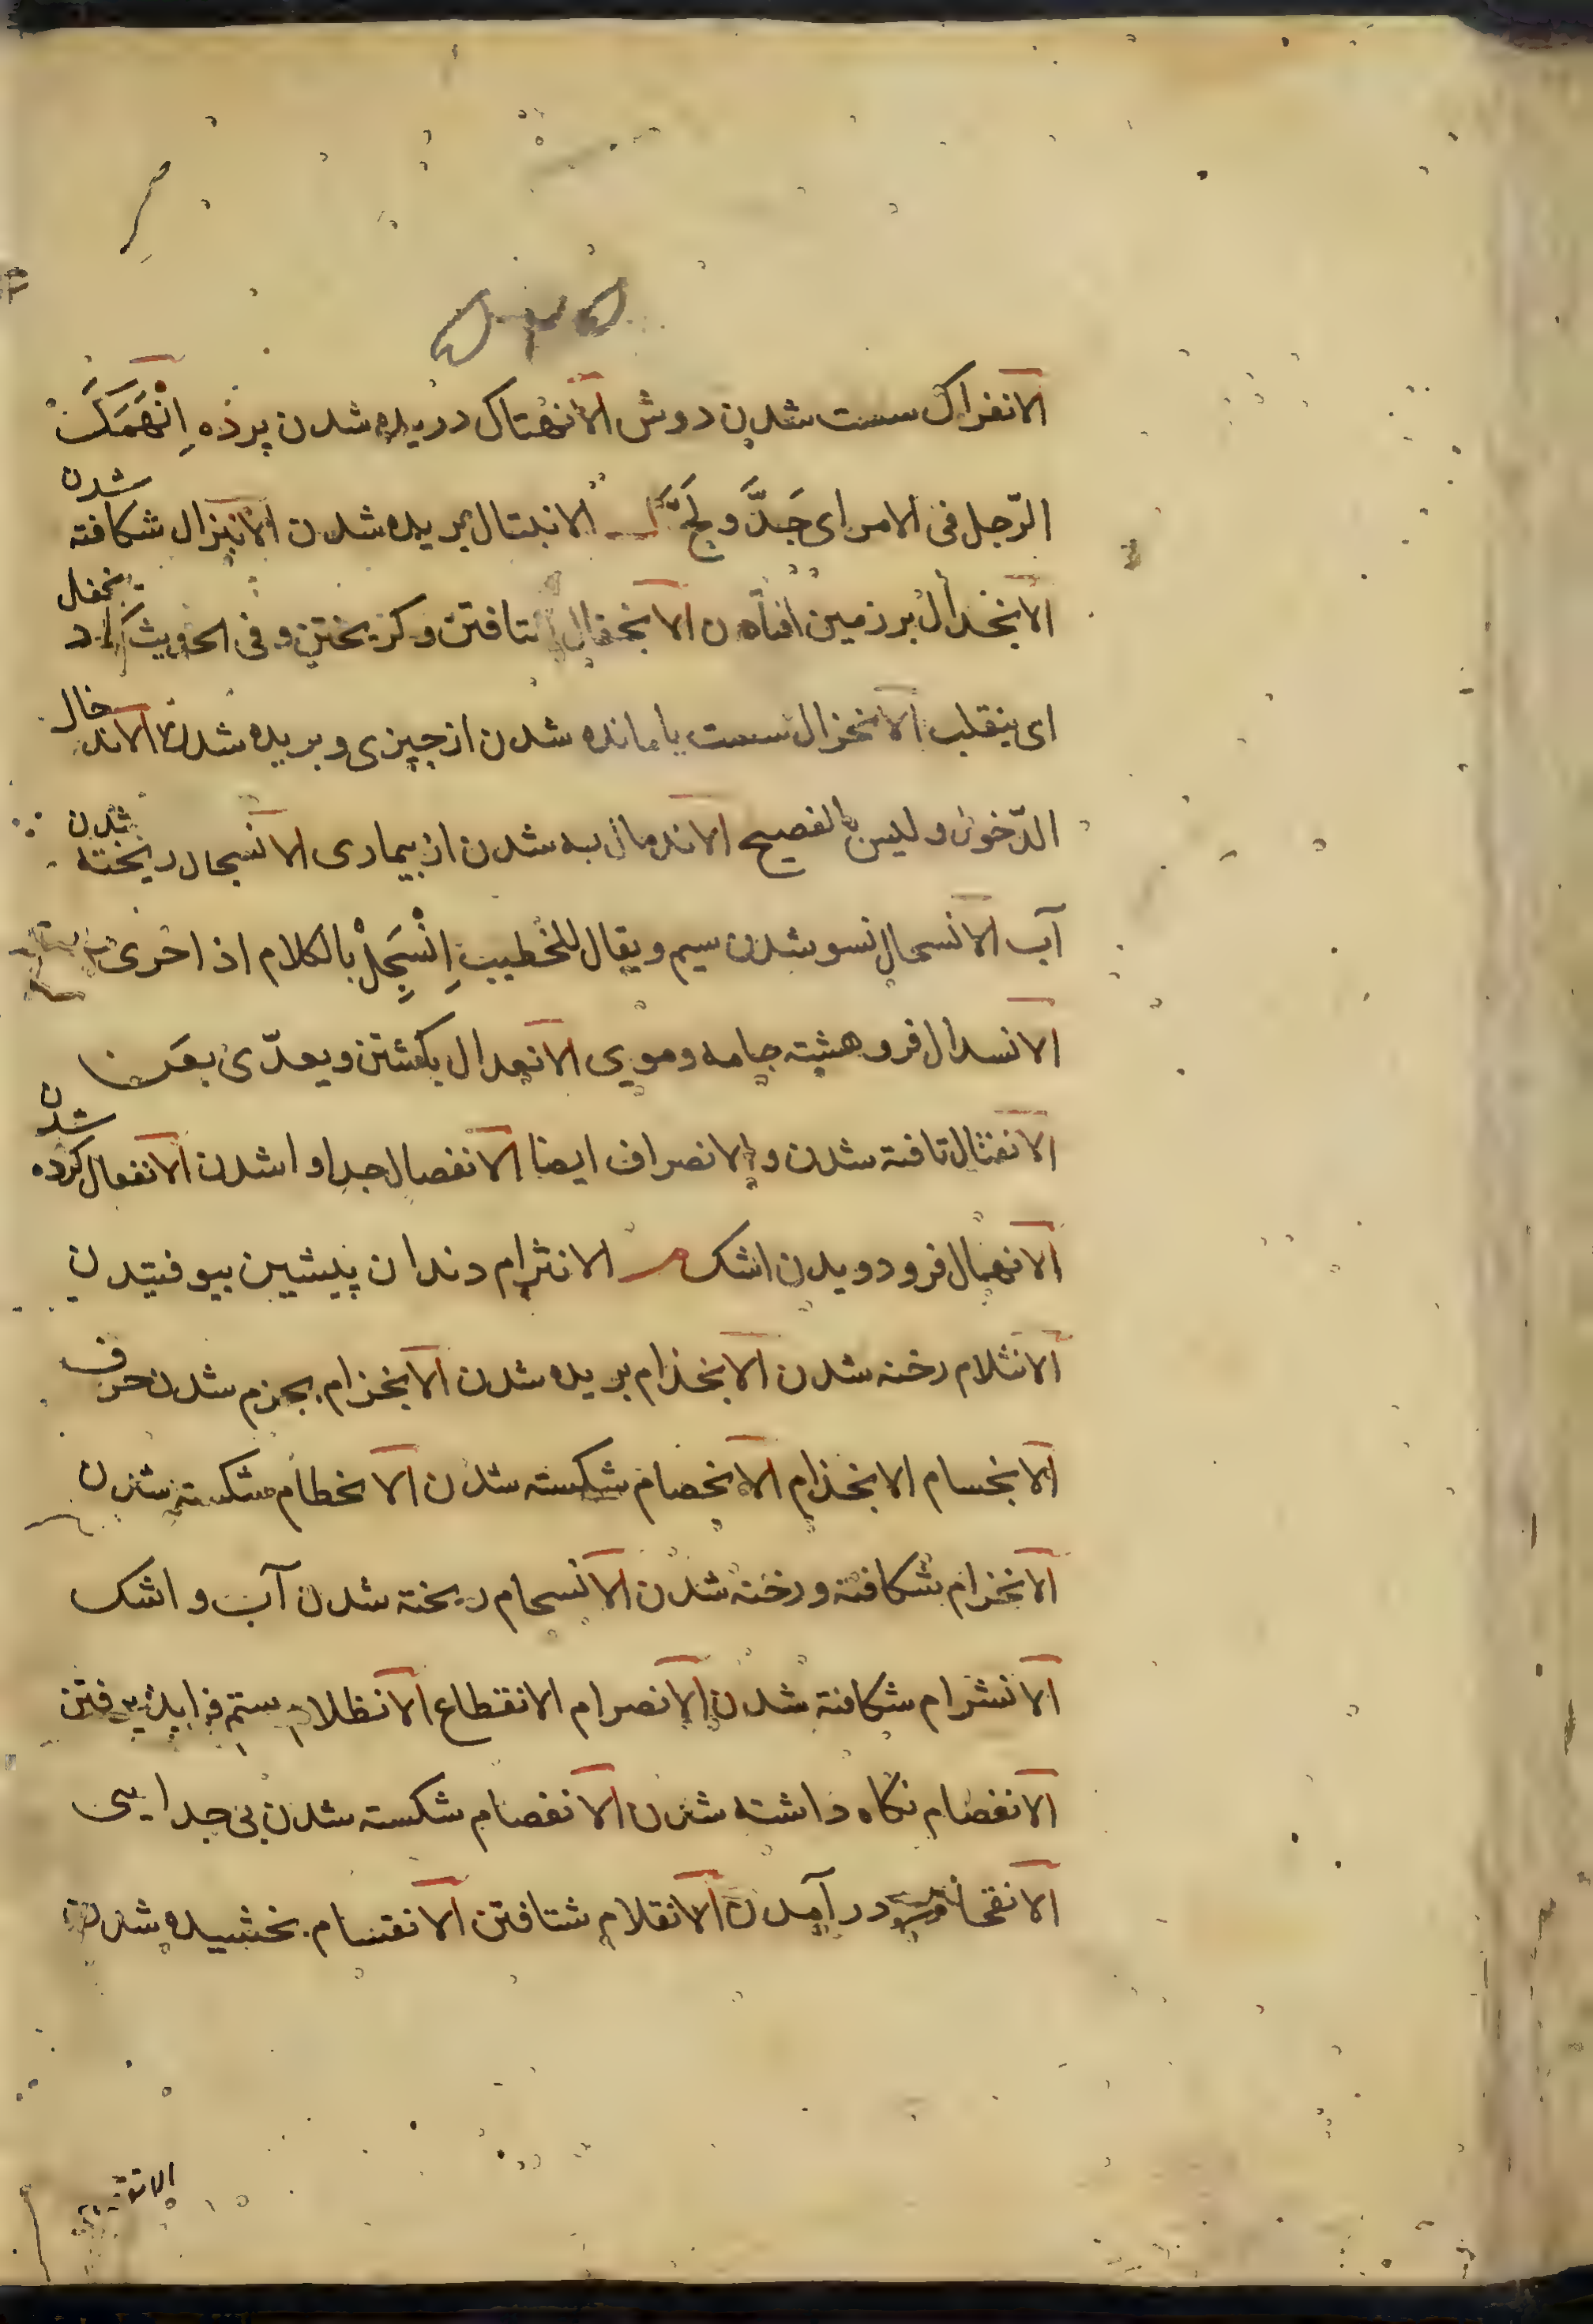 الانفراك سست شدن دوش الانهتاك دريده شدن پرده اِنْهَمَكَ
الرّجل فى الامر اى جَدَّ و لَجَّ ل الانبتال بريده شدن الانبزال شكافته شدن
الانخدال بر زمين افتادن الانجفال شتافتن و كريختن و فى الحديث ينجفل
اى ينقلب الانخزال سست يا مانده شدن از چيزى و بريده شدن الاندخال
الدّخول و ليس بالفصيح الاندمال به شدن از بيمارى الانسجال ريخته شدن
آب الانسحال نسو شدن سيم و يقال للخطيب اِنْسَحِلْ بالكلام اذا جرى
الانسدال فرو هشته جامه و موى الانعدال بكشتن و يعدّى بعَن
الانفتال تافته شدن و الانصراف ايضا الانفصال جدا وا شدن الانفعال كرده شدن
الانهمال فرو دويدن اشك م الانثرام دندان پيشين بيوفتيدن
الانثلام رخنه شدن الانجذام بريده شدن الانجزام بجزم شدن حرف
الانحسام الانجذام الانحصام شكسته شدن الانحطام شكسته شدن
الانخرام شكافته و رخنه شدن الانسجام ريخته شدن آب و اشك
الانشرام شكافته شدن الانصرام الانقطاع الانظلام ستم فرا پذيرفتن
الانفصام نكاه داشته شدن الانفصام شكسته شدن بى جدايى
الانقحام در آمدن الانقلام شتافتن الانقسام بخشيده شدن